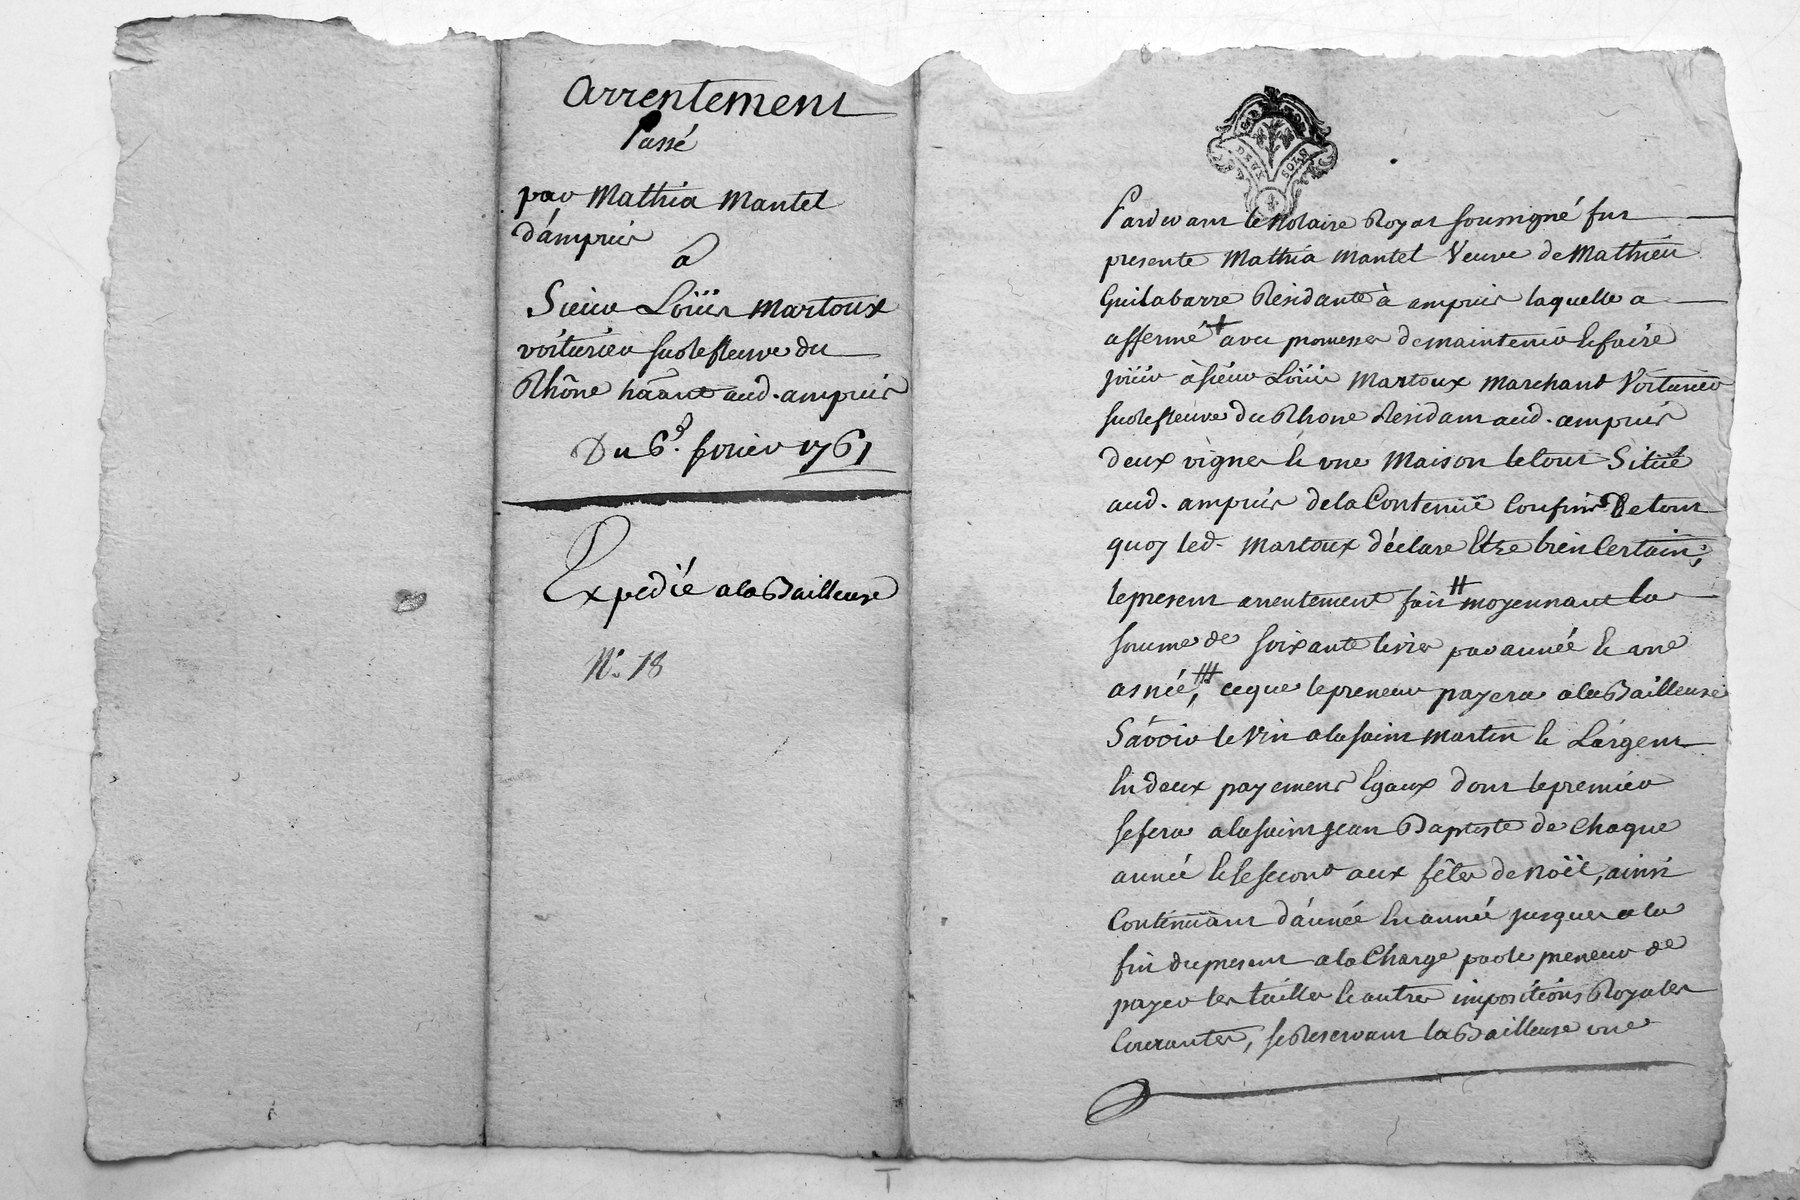 arrentement
Passé
par Mathia Mantel
d'ampuis
a
Sieur Loüis Martoux
voiturier sur le fleuve du
Rhône haant aud. ampuis
Du 6e. fevrier 1761
Expedié a la Bailleuse
N. 18
DEUX SOLS
Pardevant le Notaire Royal soussigné fut
presente Mathia Mantel Veuve de Mathieu
Guilabarre Residante à ampuis laquelle a
affermé + avec promesse de maintenir & faire
joüir à sieur Loüis Martoux marchand Voiturier
sur le fleuve du Rhone Residant aud. ampuis
deux vignes & une Maison le tout Situé
aud. ampuis de la Contenüe Confins De tout
quoy led. Martoux déclare Etre bien Certain;
le present arrentement fait # moyennant la
somme de soixante livres par année & une
asnée, ce que le preneur payera a la Bailleuse
Sávoir le Vin a la saint Martin & L'argent
En deux payements Egaux dont le premier
se fera a la saint Jean Baptiste de Chaque
année & le second aux fêtes de Noël, ainsi
Continüant d'année En année jusques a la
fin du present a la Charge par le preneur de
payer les tailles & autres impositions Royales
Courantes, se Reservant la Bailleuse une